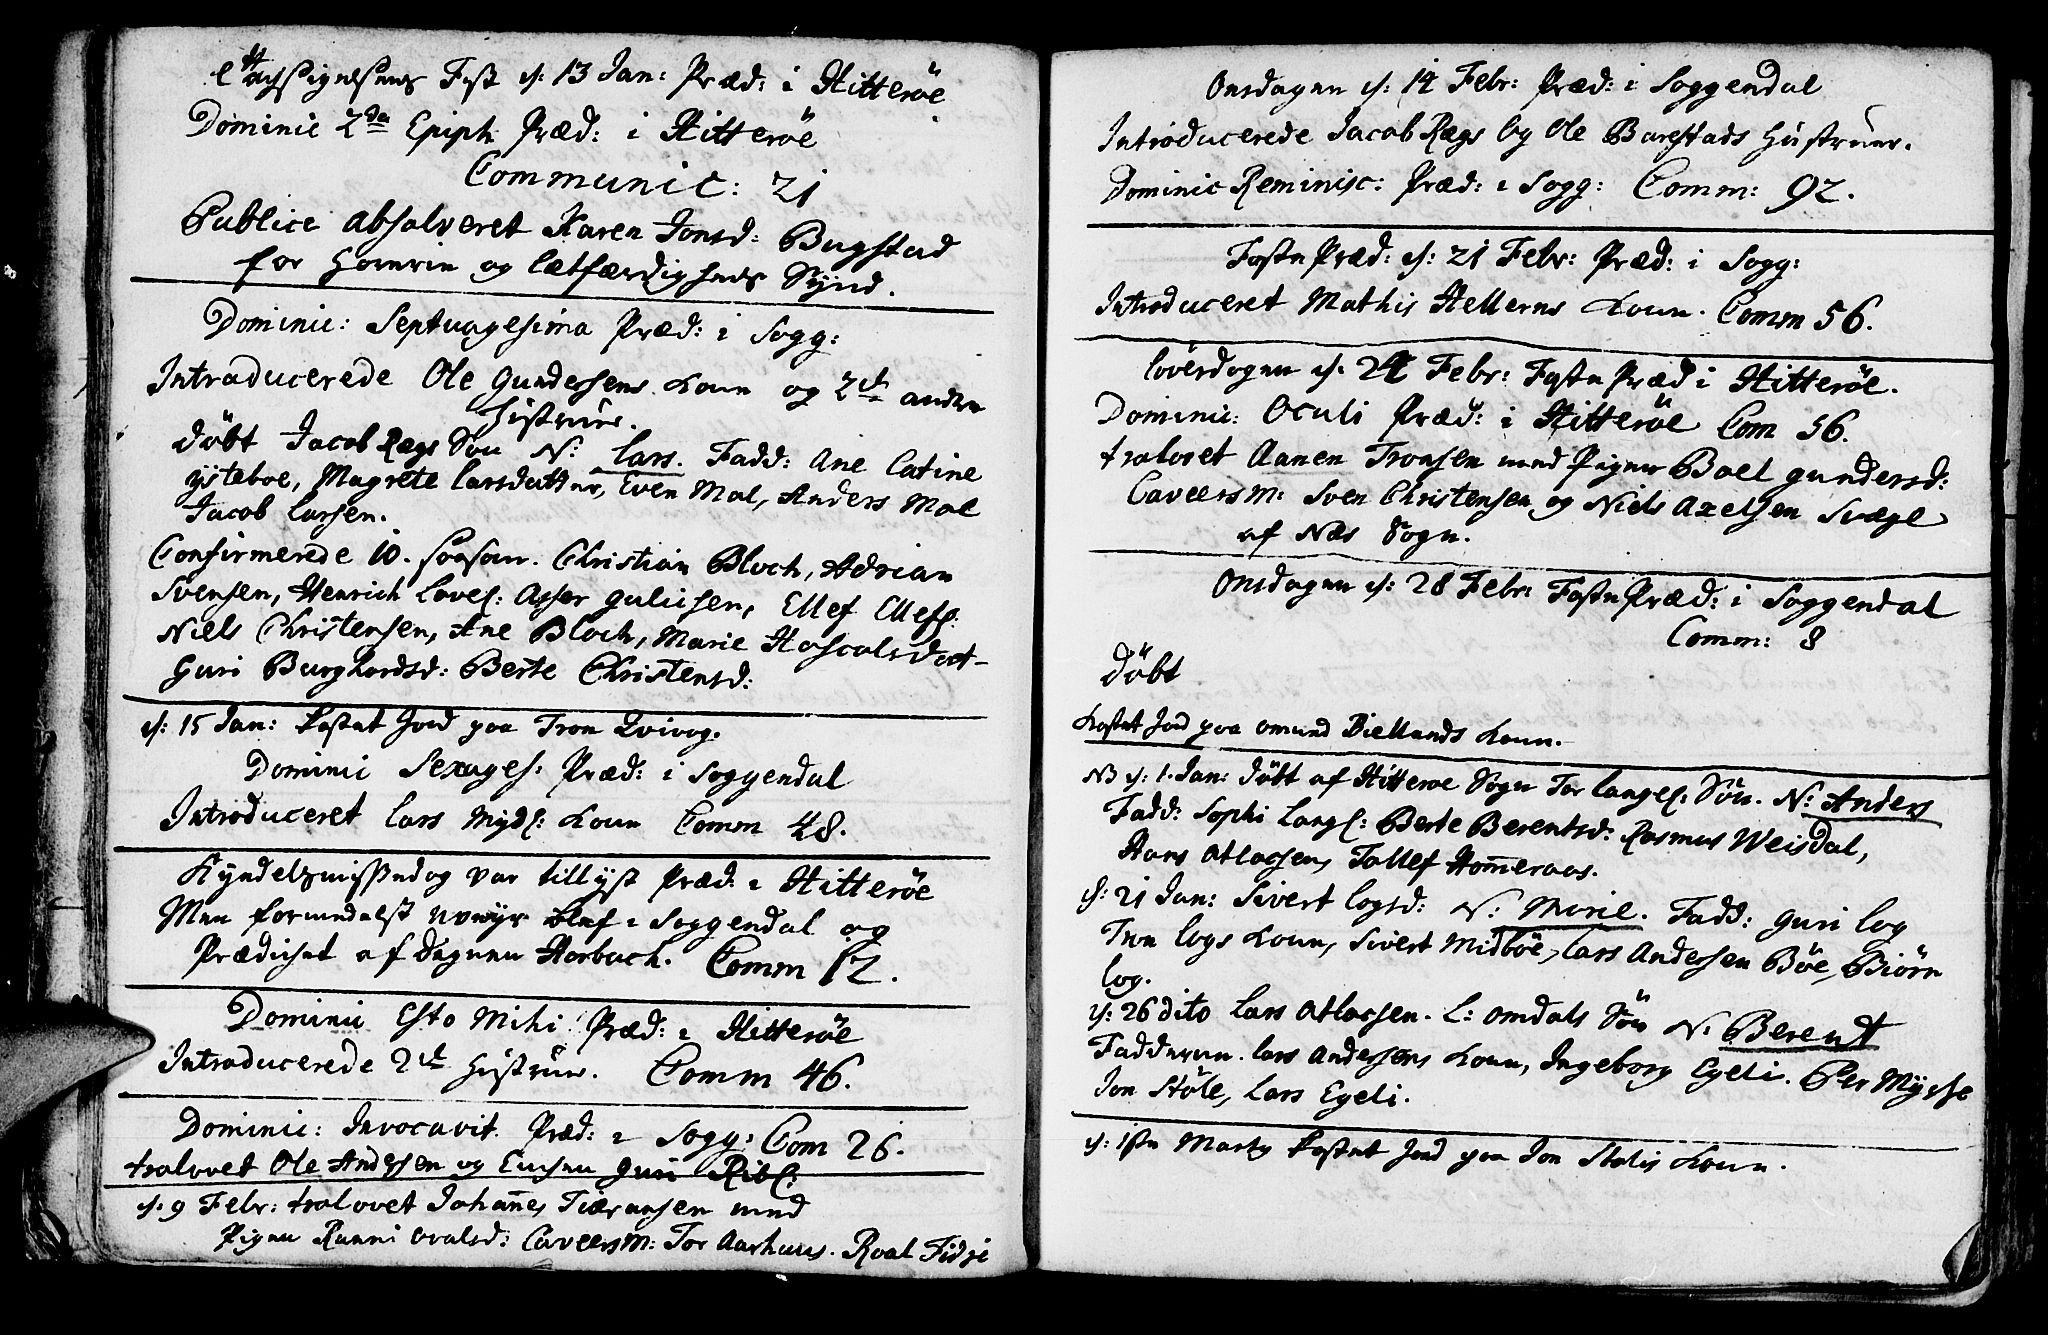 Tachsigelsens Fest d: 13 Jan: Præd: i Hitterøe
Dominic 2da Epiph. Præd: i Hitterøe
Communic: 21
Publice absolveret Karen Jonsd: Bugstad
for Horerie og Letfærdigheds Synd.
Dominic: Septuagesima Præd: i Sogg:
Introducerede Ole Gundersens Kone og 2de andre
Hustruer.
døbt Jacob Rægs Søn N: Lars. Fadd: Ane Catine
ysteboe, Magrete Larsdatter, Even Mal, Anders Mal
Jacob Larsen.
Confirmerede 10. Persohner. Christian Bloch, Adrian
Svensen, Henrich Loves: Asser Gulicsen, Ellef Ellefs:
Niels Christensen, Ane Bloch, Marie Hascalsdat-
Guri Burghardsd: Berte Christensd:
d: 15 Jan: Kastet Jord paa Tron Qvivog.
Dominic Sexages: Præd: i Soggendal
Introduceret Lars Myds: Kone Comm 48.
Kyndelsmissedag var tillyst Præd. i Hitterøe
Men formedelst uveyr blef i Soggendal og
Prædichet af Degnen Horbach. Comm 12.
Dominic Esto Mihi Præd: i Hitterøe
Introducerede 2de Hustruer. Comm 46.
Dominic: Invocavit. Præd: i Sogg: Com 26.
trolovet Ole Andersen og Enchen Guri Ribs:
d. 9 Febr: trolovet Johannes Tiøransen med
Pigen Ranni Oralsd: Caveers M: Tor Aarhuus. Roal Fidje
Onsdagen d: 14 Febr: Præd: i Soggendal
Introducerede Jacob Rægs og Ole Barstads Hustruer.
Dominic Reminisc: Præd: i Sogg: Comm: 92.
Faste Præd: d: 21 Febr: Præd: i Sogg:
Introduceret Mathis Hellerns Kone. Comm 56.
Løverdagen d. 24 Febr: Faste Præd i Hitterøe.
Dominic: Oculi Præd: i Hitterøe Com 56.
trolovet Aanen Tronsen med Pigen Boel Gundersd:
Caveers M: Sven Christensen og Niels Axelsen Svege
af Næs Sogn.
Onsdagen d: 28 Febr: Faste Præd: i Soggendal
Comm: 8
Døbt
Kastet Jord paa Omund Biellands Kone.
NB d: 1. Jan: døbt af Hitteroe Sogn Tor Langes: Søn. N: Anders
Fadd: Sophi Langs: Berte Berentsd: Rasmus Weisdal,
Hans Atlacsen, Tollef Hommeraas.
d: 21 Jan: Sivert Logsd: N: Marie. Fadd: Guri Log
Tron Logs Kone, Sivert Midbøe, Lars Andersen Bøe, Biørn
Log.
d: 26 dito Lars Atlacsen. L: Omdals Søn N: Berent
Fadderne. Lars Andersens Kone, Ingeborg Egeli. Per Mysse
Jon Støle, Lars Egeli.
d: 1ste Marty Kastet Jord paa Jon Stolis Kone.